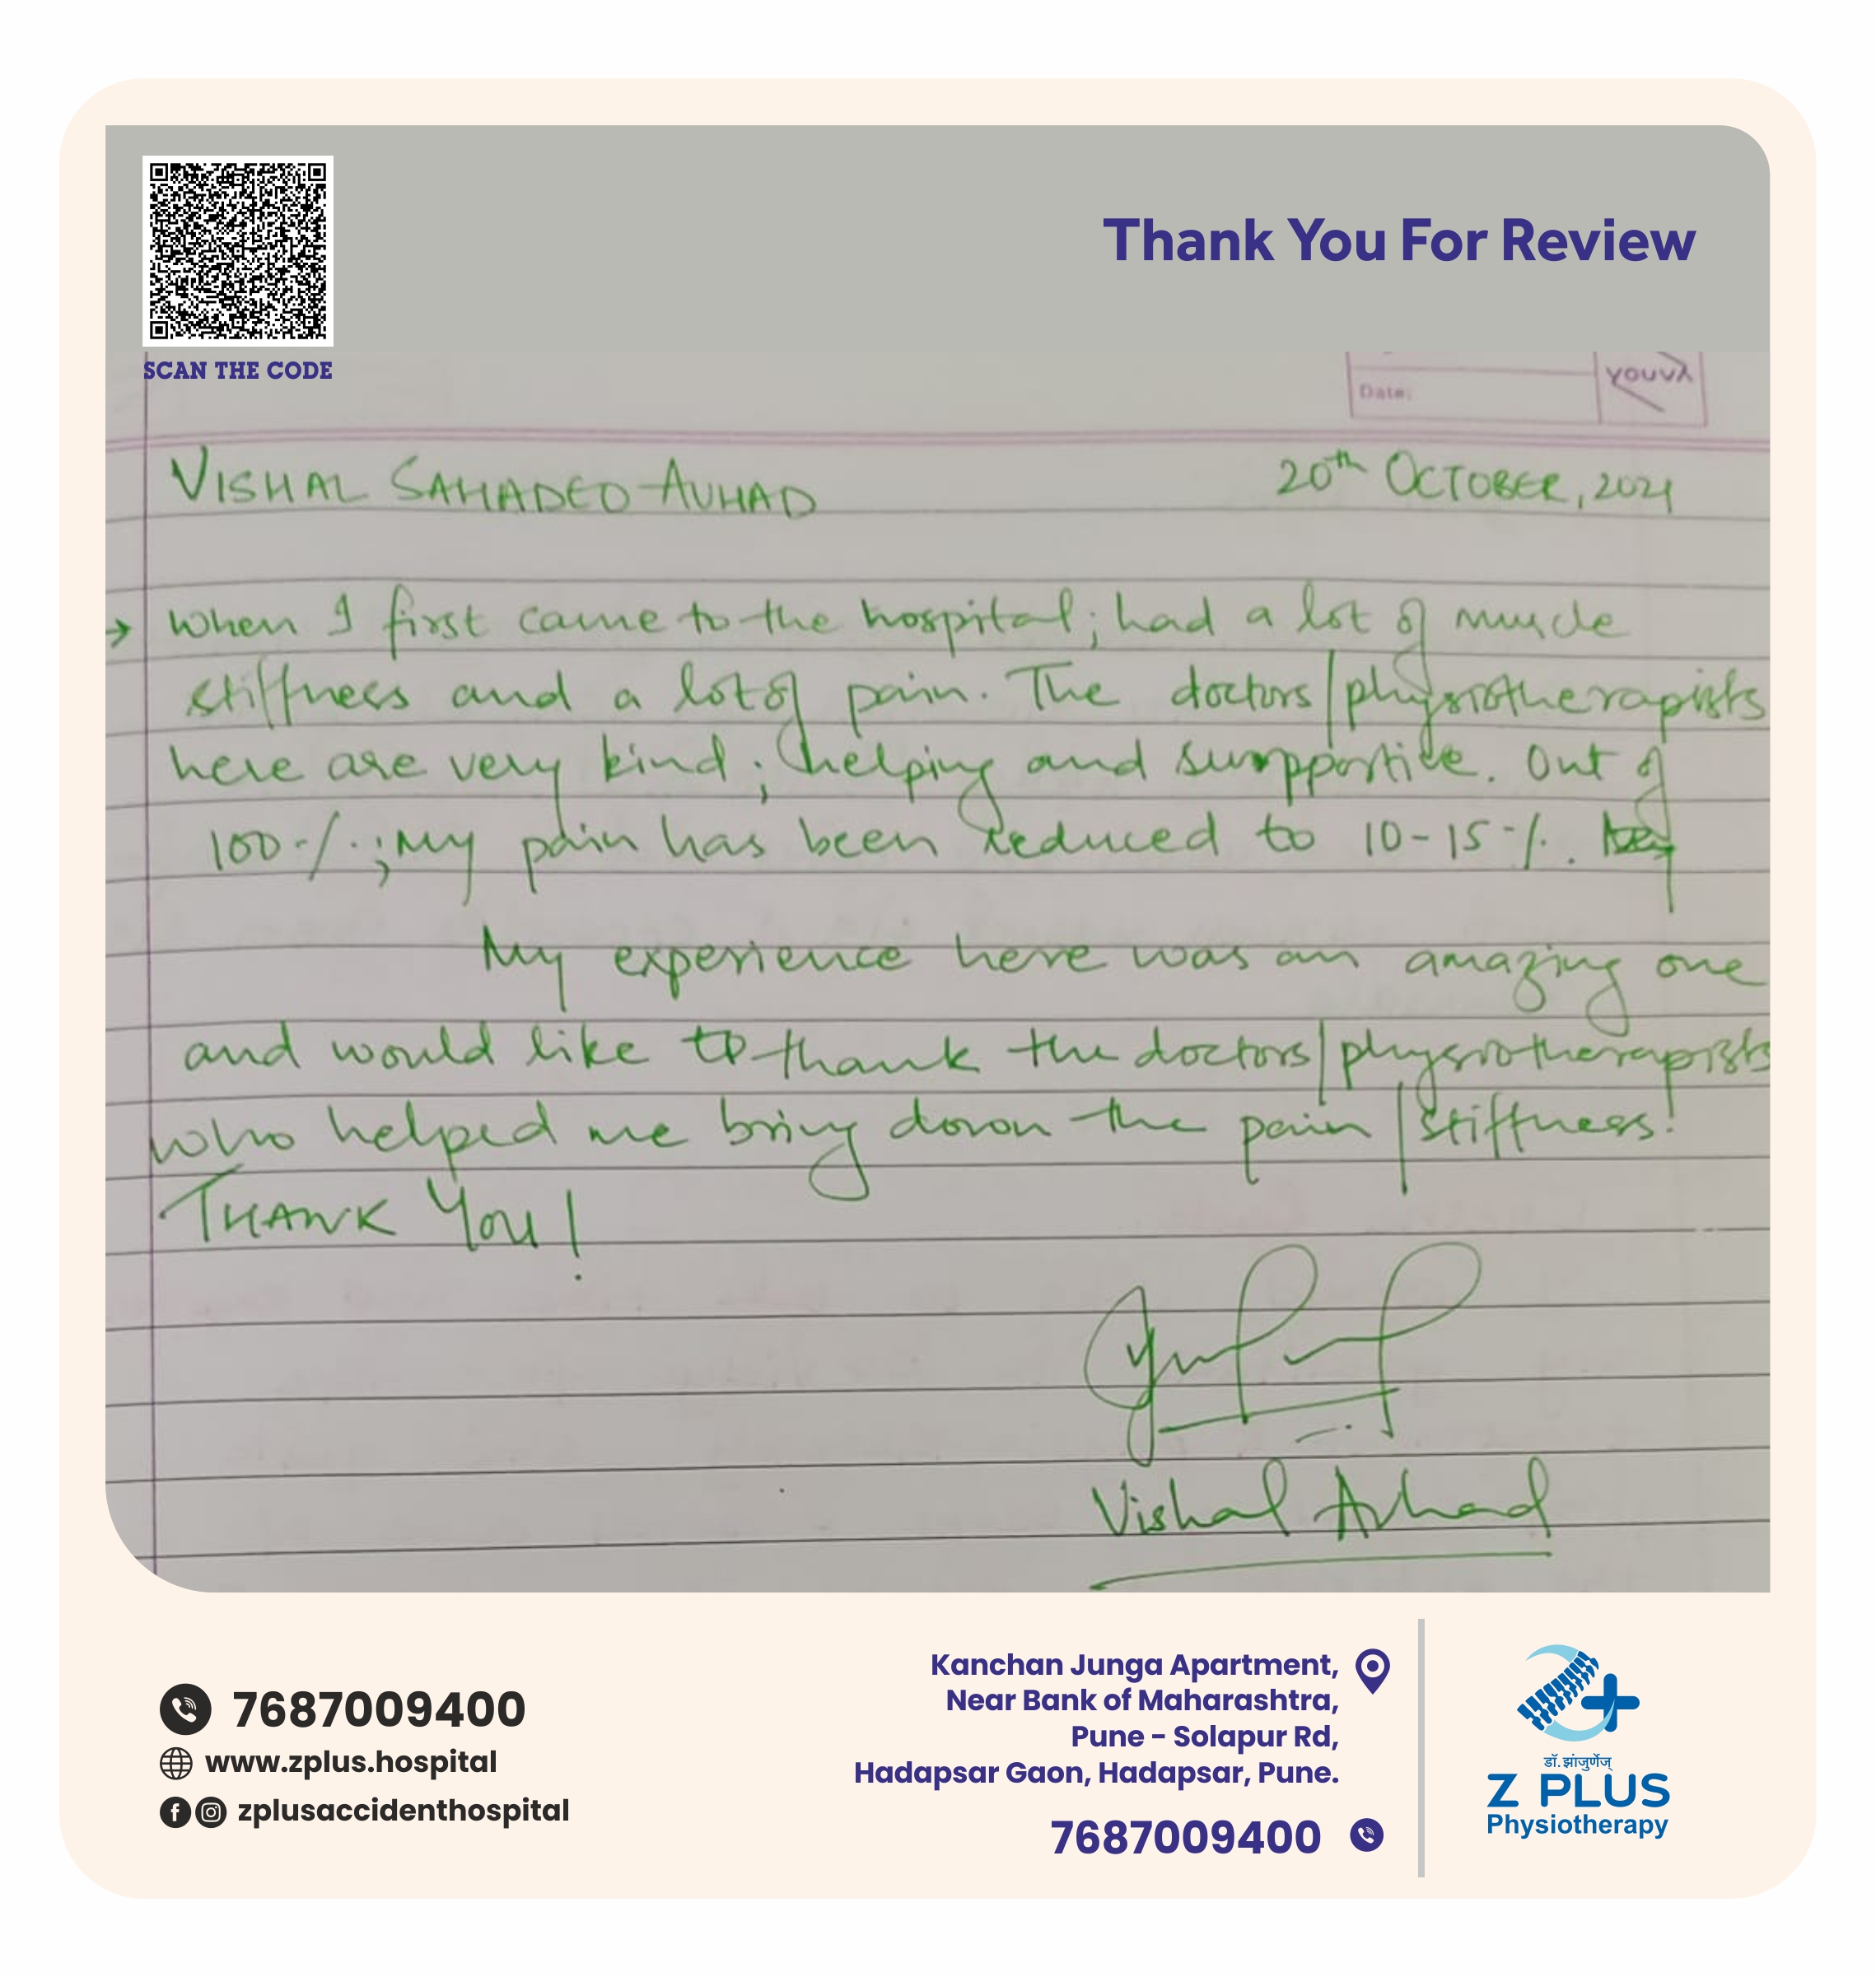 Thank You For Review
SCAN THE CODE
Date:
youva
VISHAL SAHADEO AVHAD 20th OCTOBER, 2021
→ When I first came to the hospital; had a lot of muscle
stiffness and a lot of pain. The doctors/physiotherapists
here are very kind; helping and suppportive. Out of
100%; My pain has been reduced to 10-15%.
My experience here was an amazing one
and would like to thank the doctors/physiotherapists
who helped me bring down the pain/stiffness!
THANK YOU!
Vishal Avhad
7687009400
www.zplus.hospital
zplusaccidenthospital
Kanchan Junga Apartment,
Near Bank of Maharashtra,
Pune - Solapur Rd,
Hadapsar Gaon, Hadapsar, Pune.
7687009400
डॉ. झांजुर्णेज्
Z PLUS
Physiotherapy